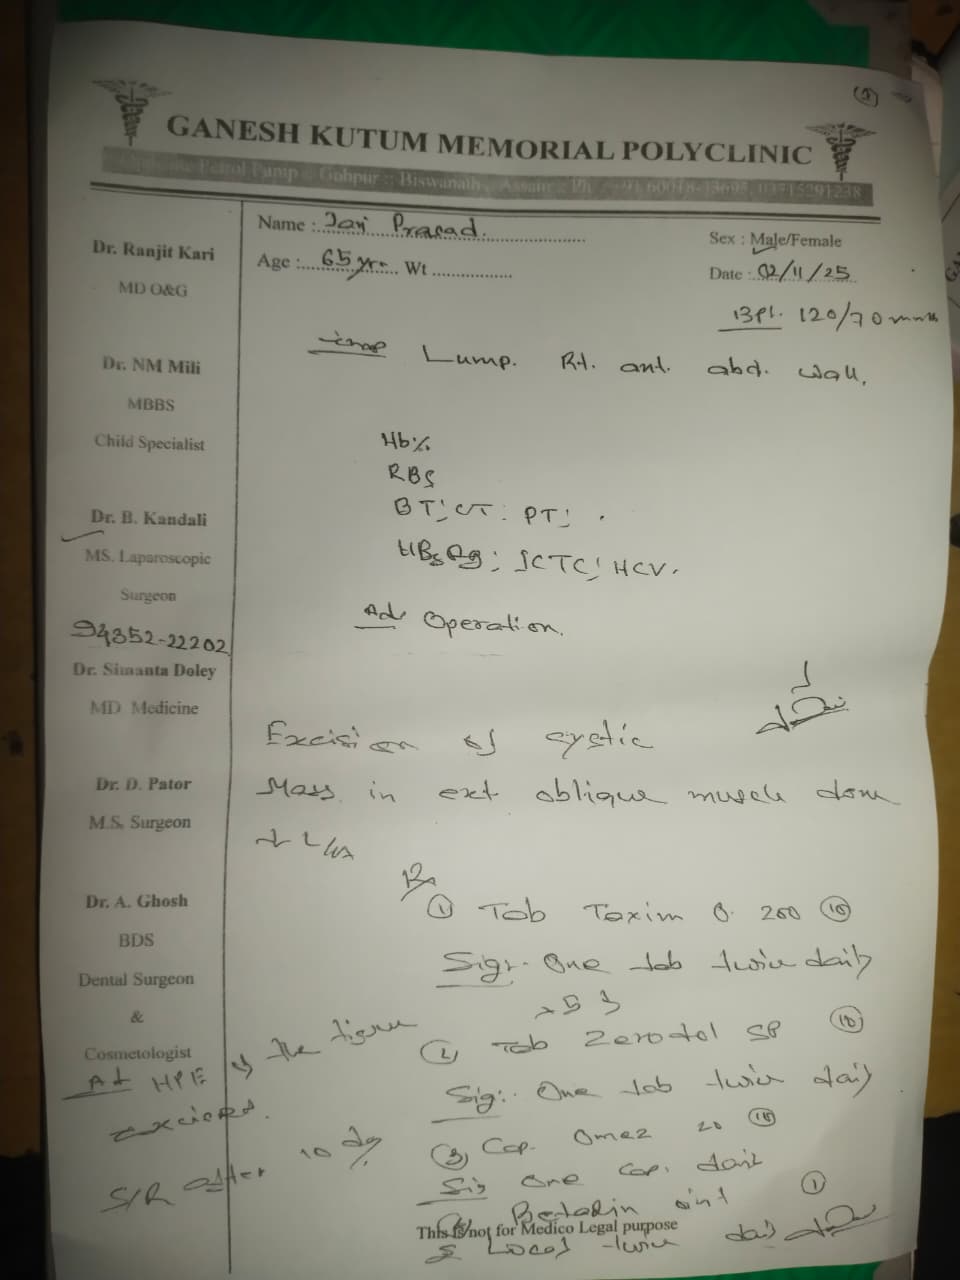 GANESH KUTUM MEMORIAL POLYCLINIC
Petrol Pump :: Gohpur :: Biswanath, Assam :: Ph
Dr. Ranjit Kari
MD O&G
Dr. NM Mili
MBBS
Child Specialist
Dr. B. Kandali
MS. Laparoscopic
Surgeon
94352-22202
Dr. Simanta Doley
MD Medicine
Dr. D. Pator
M.S. Surgeon
Dr. A. Ghosh
BDS
Dental Surgeon
&
Cosmetologist
Name : Prasad
Sex : Male/Female
Age : 65 yrs Wt
Date : 02/11/25
120/70
Lump. Rt. ant. abd. wall.
Hb%
RBS
BT; CT; PT;
HBsAg; ICTC; HCV.
Ad Operation.
Excision of cystic
Mass in ext oblique muscle done
Rx
① Tab Taxim O 200 ⑩
Sig:- One tab twice daily
② Tab Zerodol SP ⑩
Sig:- One tab twice daily
③ Cap. Omez 20
Sig One cap. daily
Betadin oint ①
Local twice daily
Ad HPE of the tissue
excised.
S/R after 10 dy
This is not for Medico Legal purpose